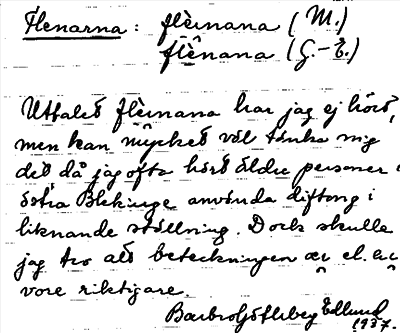 Flenarna: flèinana (M.)
flênana (G.-E.)
Uttalet flèinana har jag ej hört,
men kan mycket väl tänka mig
det då jag ofta hört äldre personer i
östra Blekinge använda diftong i
liknande ställning. Dock skulle
jag tro att beteckningen æi el. ai
vore riktigare.
Edlund
1937.